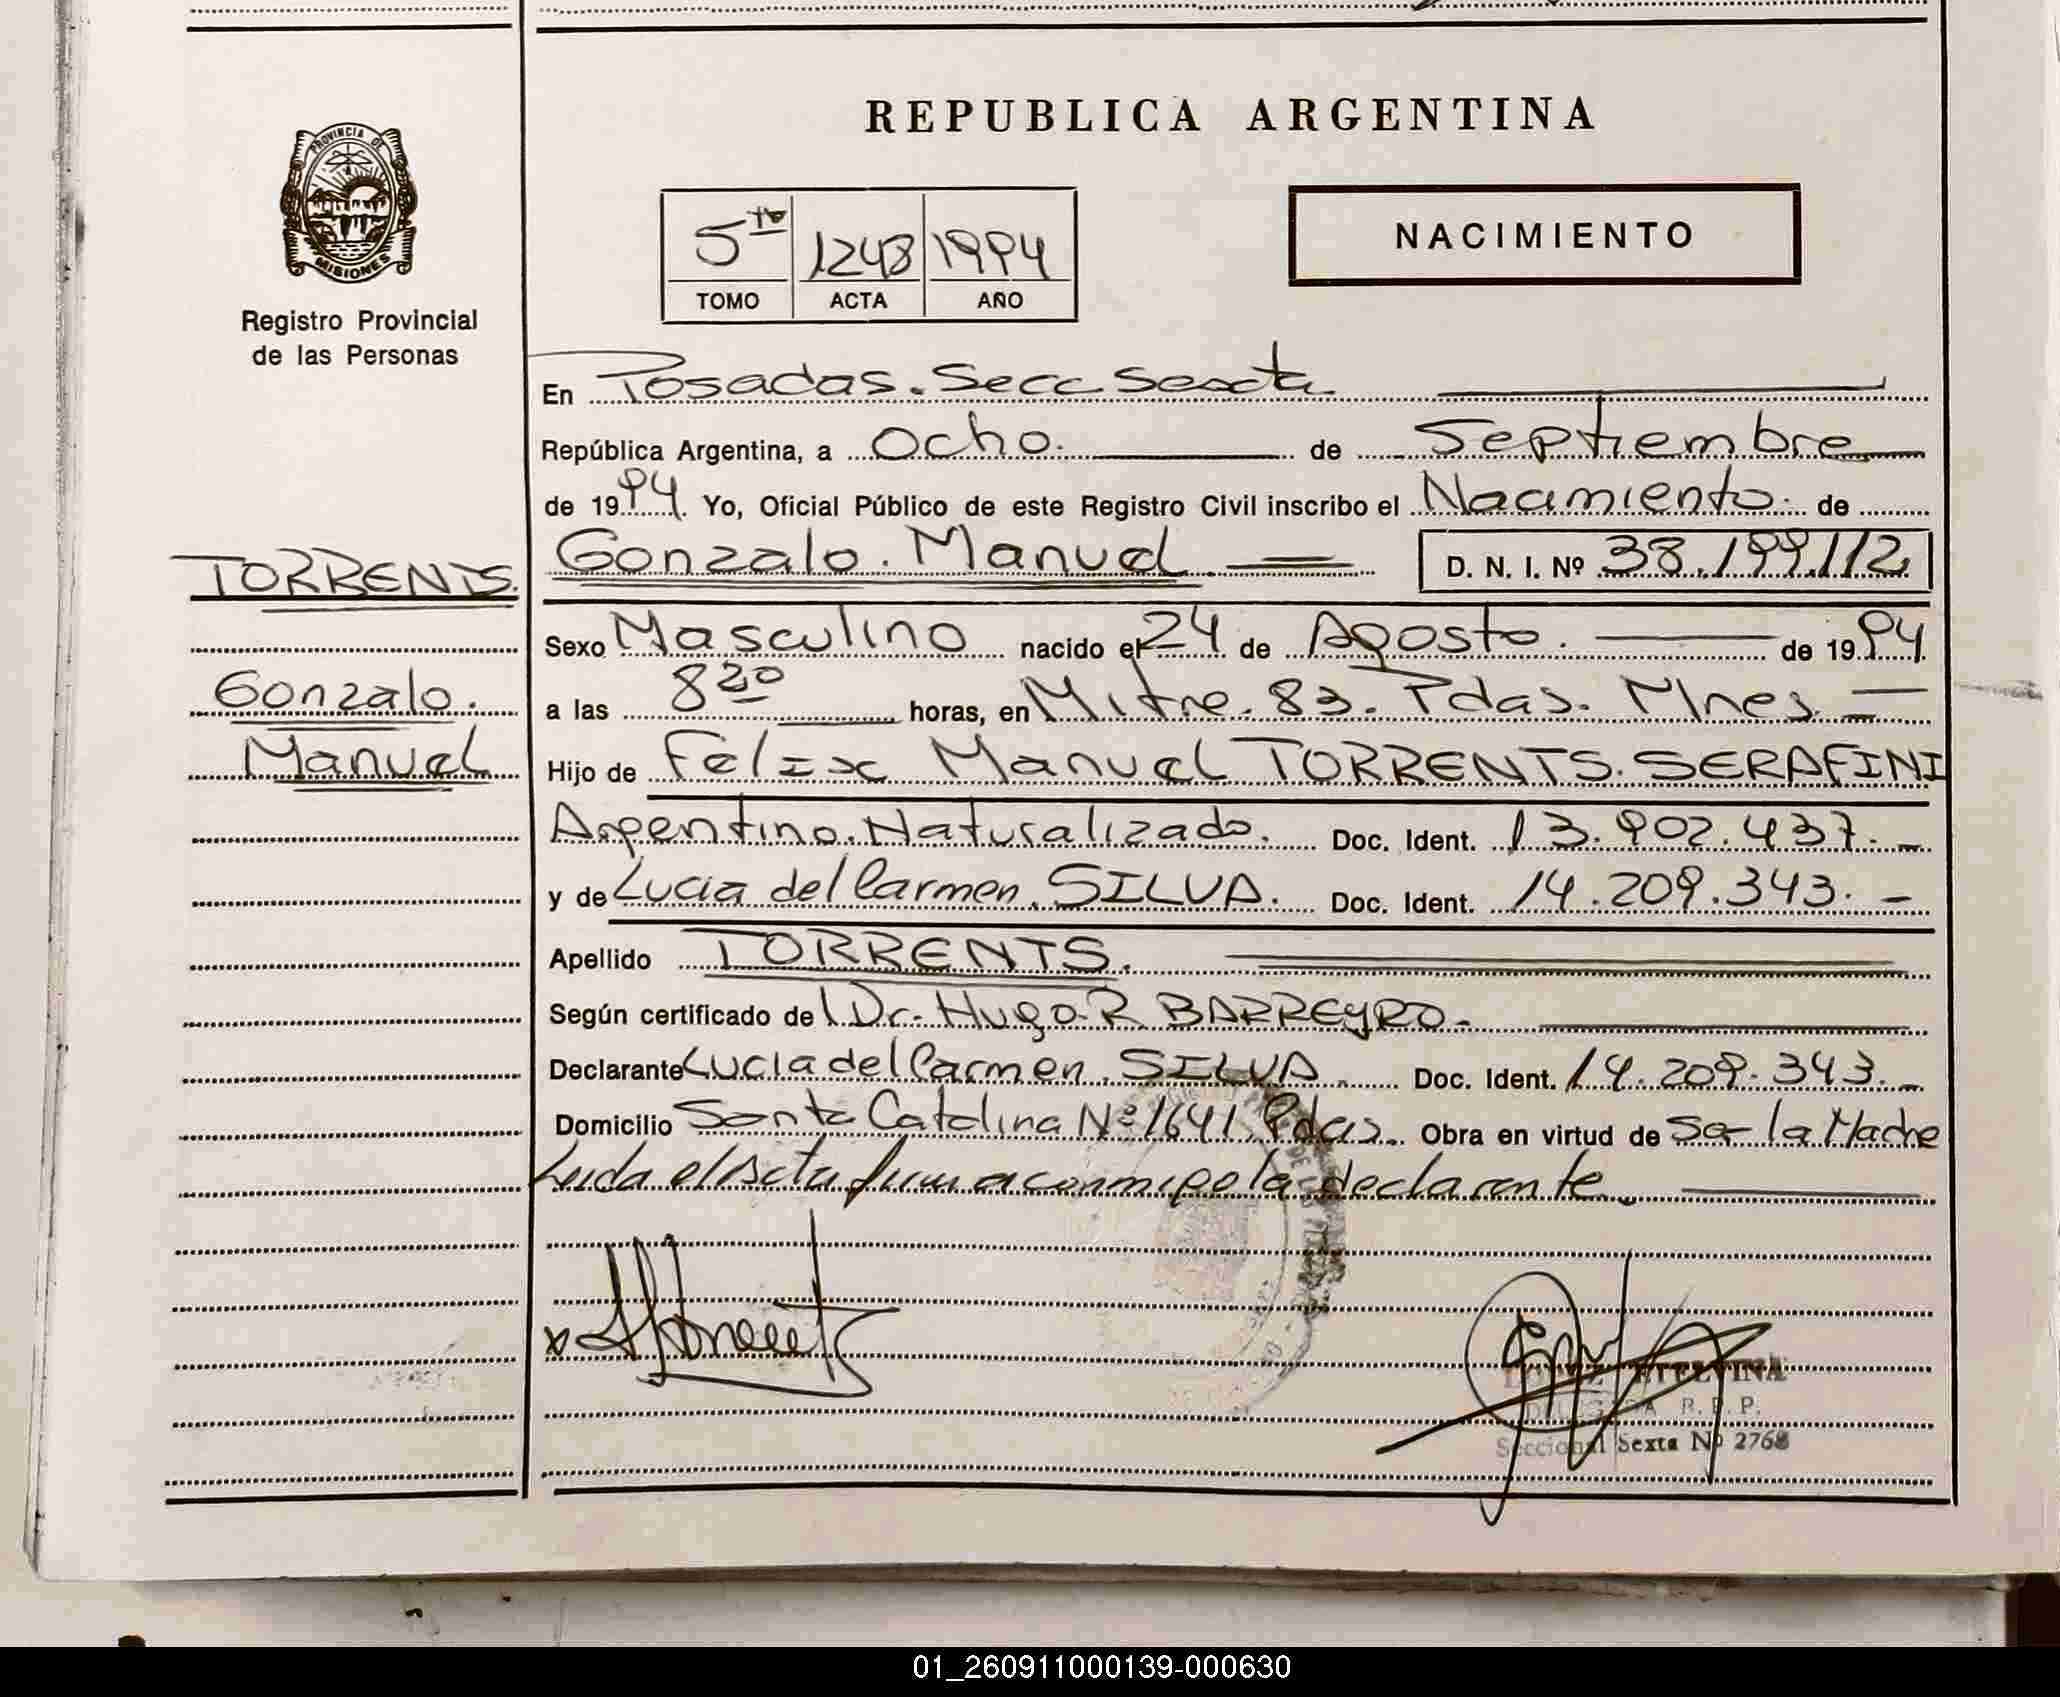 REPUBLICA ARGENTINA
PROVINCIA DE
MISIONES
Registro Provincial
de las Personas
5to 1248 1994
TOMO ACTA AÑO
NACIMIENTO
En Posadas. Secc Sexta
República Argentina, a Ocho. de Septiembre
de 1994. Yo, Oficial Público de este Registro Civil inscribo el Nacimiento. de
TORRENTS.
Gonzalo.
Manuel
Gonzalo. Manuel. D. N. I. Nº 38.199.112
Sexo Masculino nacido el 24 de Agosto. de 1994
a las 8 30 horas, en Mitre. 83. Pdas. Mnes.
Hijo de Félix Manuel TORRENTS. SERAFINI
Argentino. Naturalizado. Doc. Ident. 13.902.437.-
y de Lucia del Carmen. SILVA. Doc. Ident. 14.209.343.-
Apellido TORRENTS.
Según certificado de Dr. Hugo R BARREYRO.
Declarante Lucia del Carmen. SILVA. Doc. Ident. 14.209.343.-
Domicilio Santa Catalina Nº 1641 Pdas. Obra en virtud de Ser la Madre
Leida el Acta firma conmigo la declarante.
ETELVINA
DELEGADA R. P. P.
Seccional Sexta Nº 2768
01_260911000139-000630